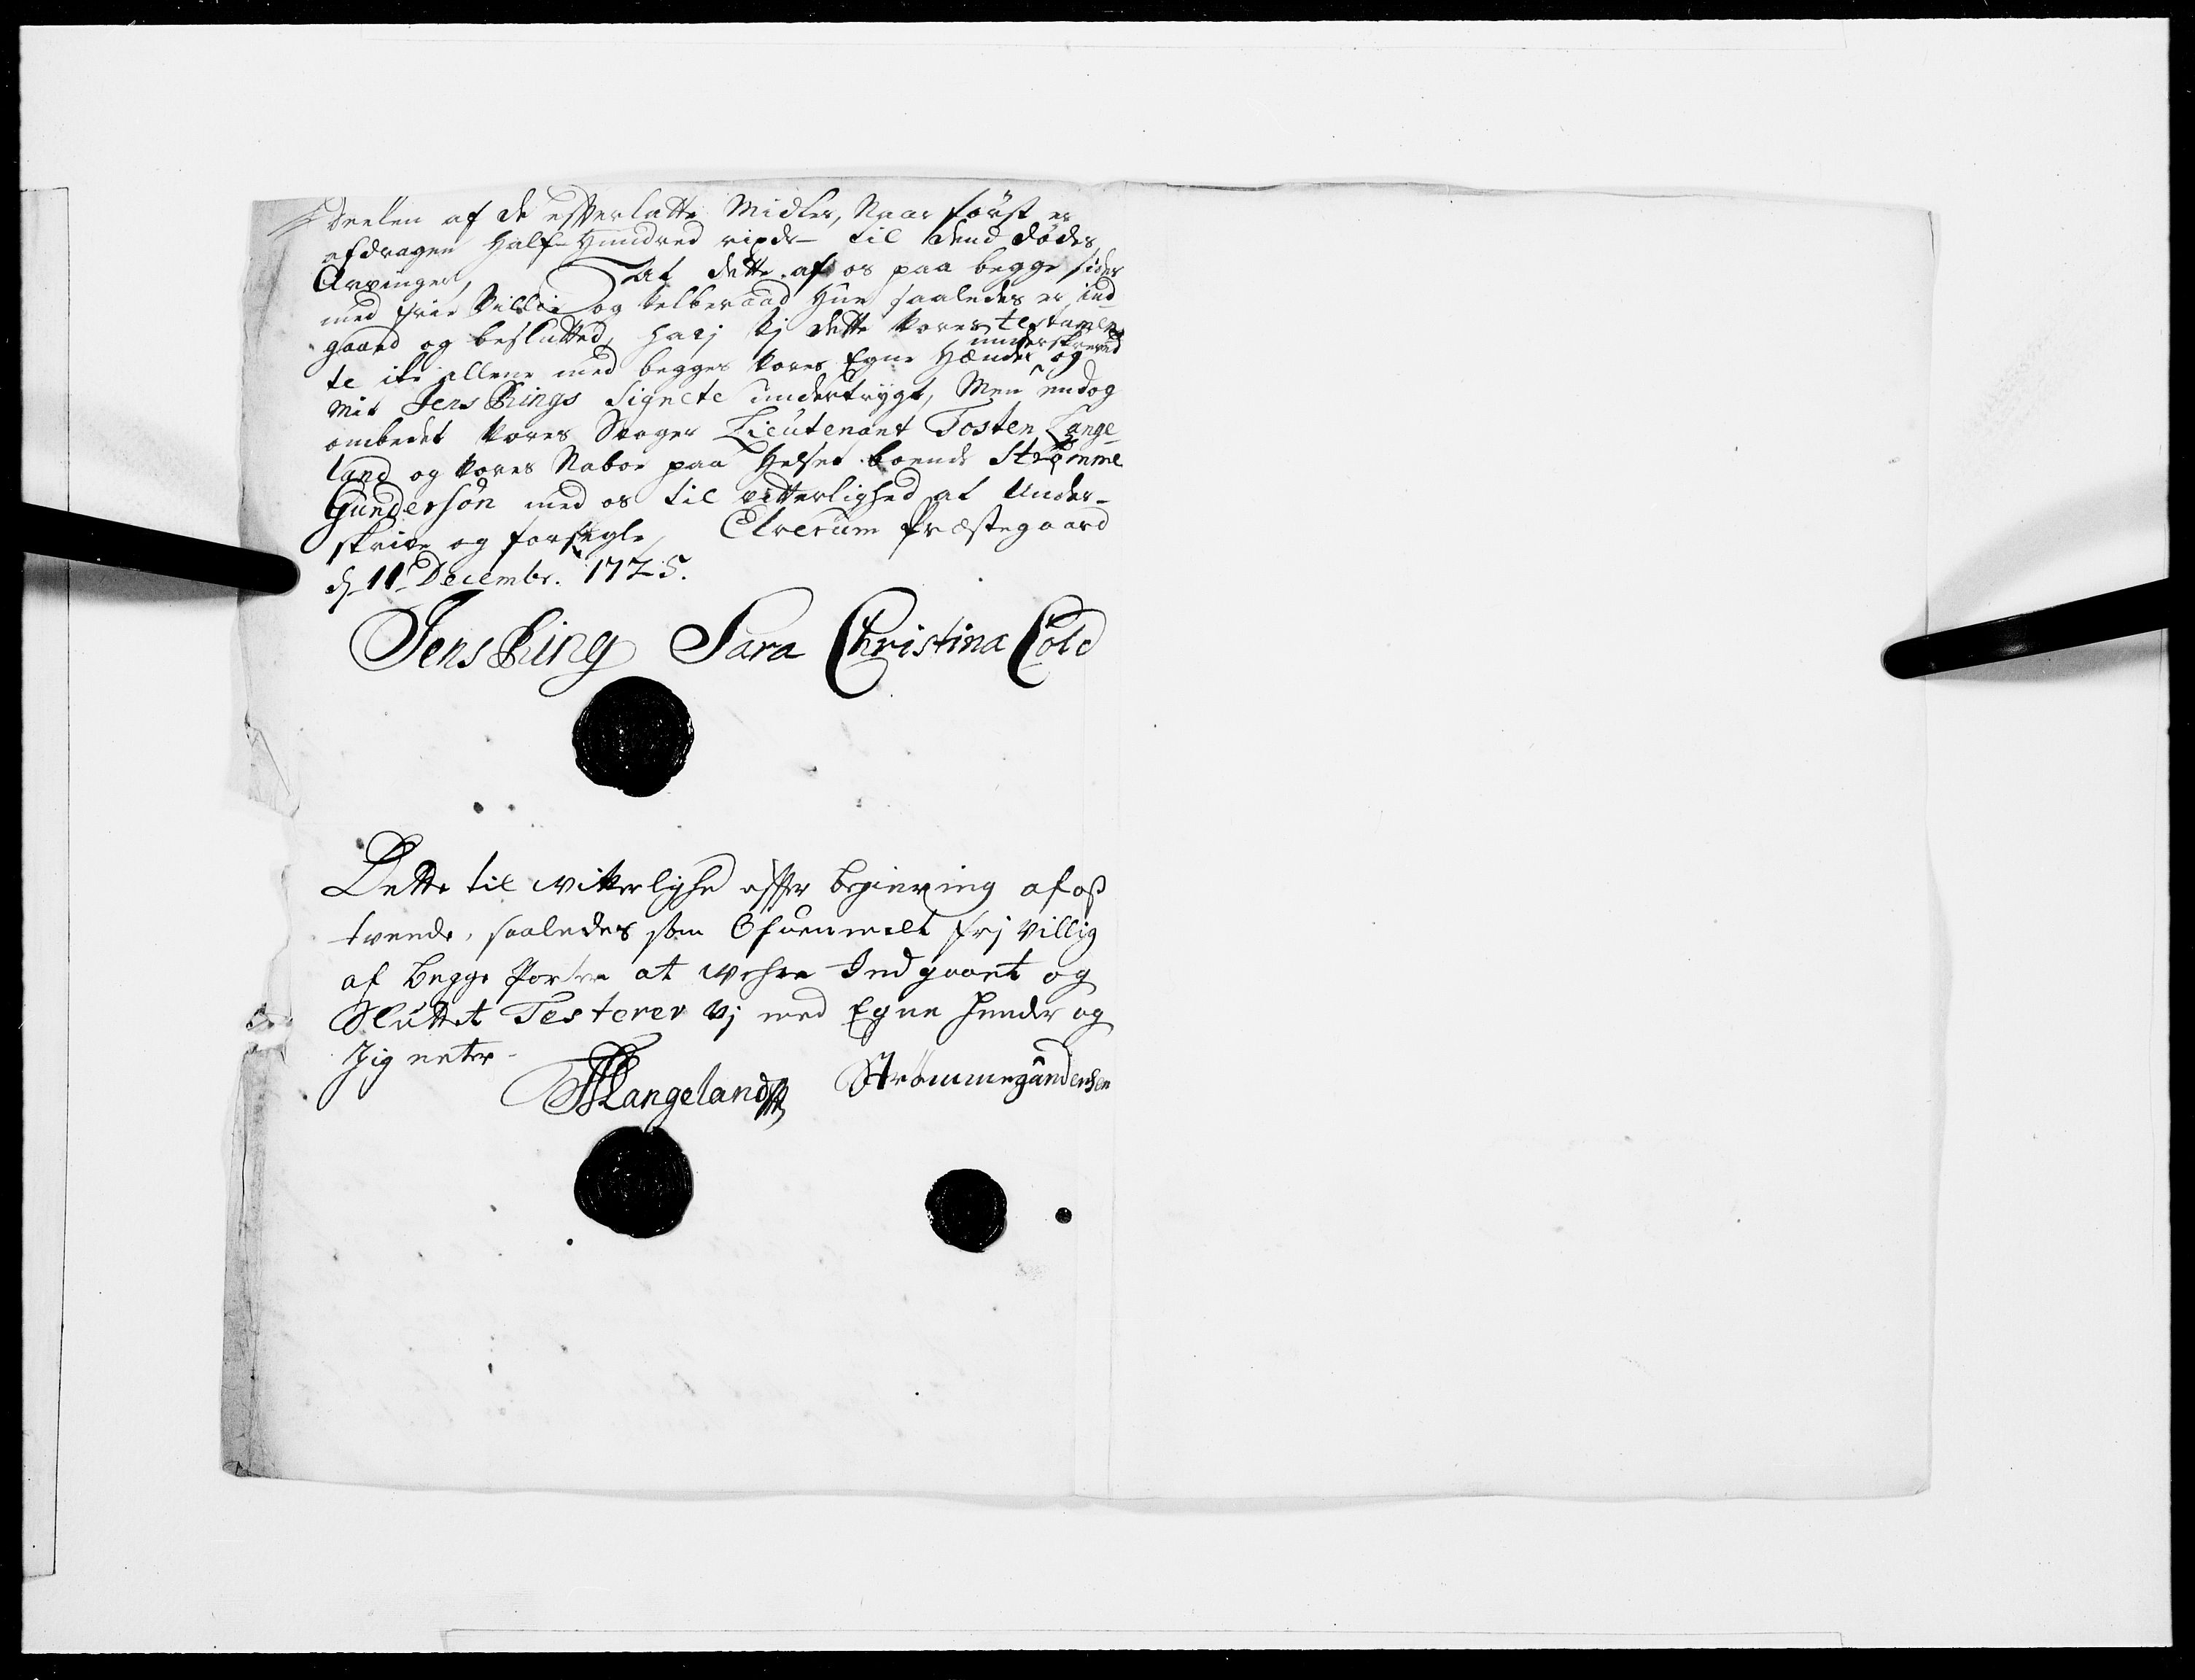 Deelen af de efterlatte Midler, Naar först er
afdragen Half-Hundred rixdr til dend dödes
Arvinger, At dette af os paa begge sider
med frie Villie og velberaad Hue saaledes er ind
gaaed og beslutted, hafj Vj dette vores testamen
te ike allene med begges vores Egne Hænder underskreved og
mit Jens Rings Signete undertrÿgt, Men endog
ombedet vores Svoger Lieutenant Tosten Lange-
land og vores Naboe paa Helset boende Strömme
Gundersön med os til vitterlighed at Under-
skrive og forsegle, Elverum Præstegaard
d. 11 Decembr. 1725.
Jens Ring Sara Christina Cold
Dette til witterlighed effter begiering af oß
tvende, saaledes som Ofuenmelt frj villig
af begge Parter at wehre Indgaaet og
Sluttet Testerer Vj med Egne hender og
Signeter
TLangeland Strömmegundersen